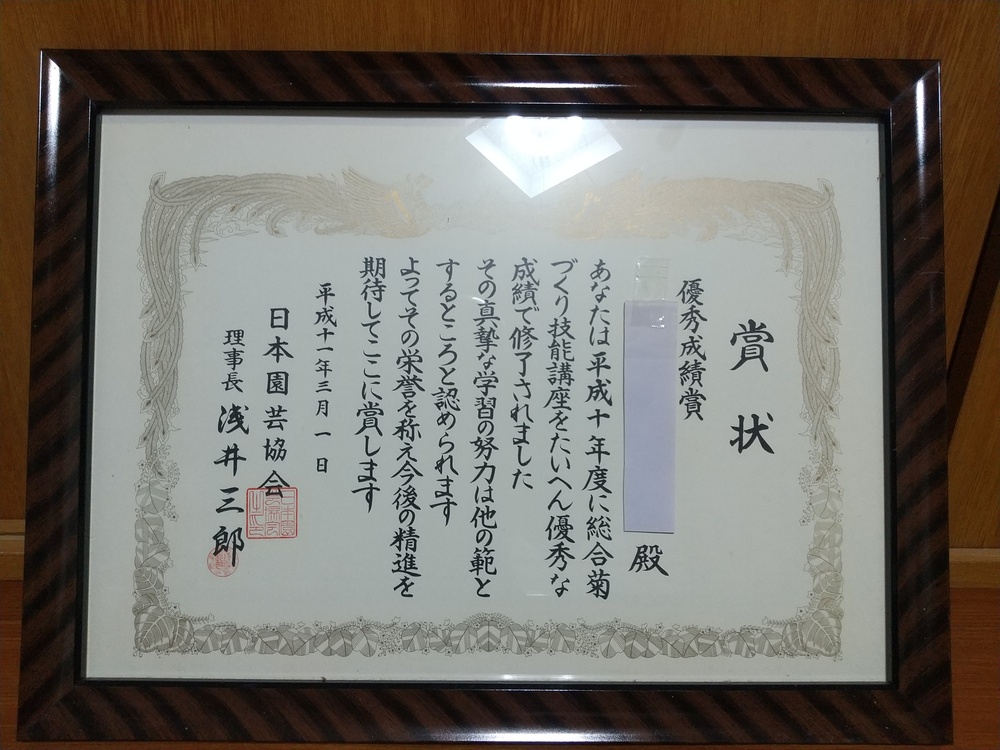 賞状
優秀成績賞
殿
あなたは平成十年度に総合菊
づくり技能講座をたいへん優秀な
成績で修了されました
その真摯な学習の努力は他の範と
するところと認められます
よってその栄誉を称え今後の精進を
期待してここに賞します
平成十一年三月一日
日本園芸協会
理事長 浅井三郎